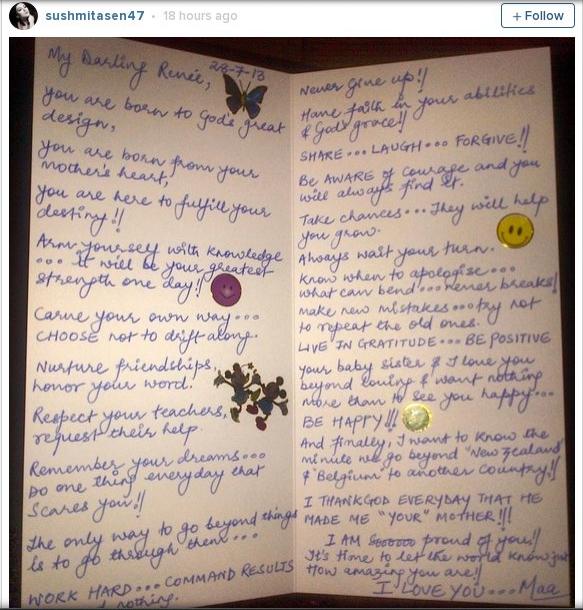 sushmitasen47 • 18 hours ago
+ Follow
My Darling Renée,
28-7-13
you are born to God's great
design,
you are born from your
mother's heart,
you are here to fulfill your
destiny!!
Arm yourself with knowledge
... it will be your greatest
strength one day!
Carve your own way...
CHOOSE not to drift along.
Nurture friendships,
honor your word.
Respect your teachers,
request their help.
Remember your dreams...
Do one thing everyday that
Scares you!!
The only way to go beyond things
is to go through them...
WORK HARD... COMMAND RESULTS
nothing.
Never give up!!
Have faith in your abilities
& God's grace!!
SHARE... LAUGH... FORGIVE!!
Be AWARE of courage and you
will always find it.
Take chances... They will help
you grow.
Always wait your turn.
Know when to apologise...
what can bend... never breaks!
make new mistakes... try not
to repeat the old ones.
LIVE IN GRATITUDE... BE POSITIVE
your baby sister & I love you
beyond loving & want nothing
more than to see you happy...
BE HAPPY!!!
And finally, I want to know the
minute we go beyond "New Zealand
& Belgium" to another Country!!
I THANK GOD EVERYDAY THAT HE
MADE ME "YOUR" MOTHER!!!
I AM Soooooo proud of you!!
It's time to let the world know just
How amazing you are!!
I LOVE YOU... Maa